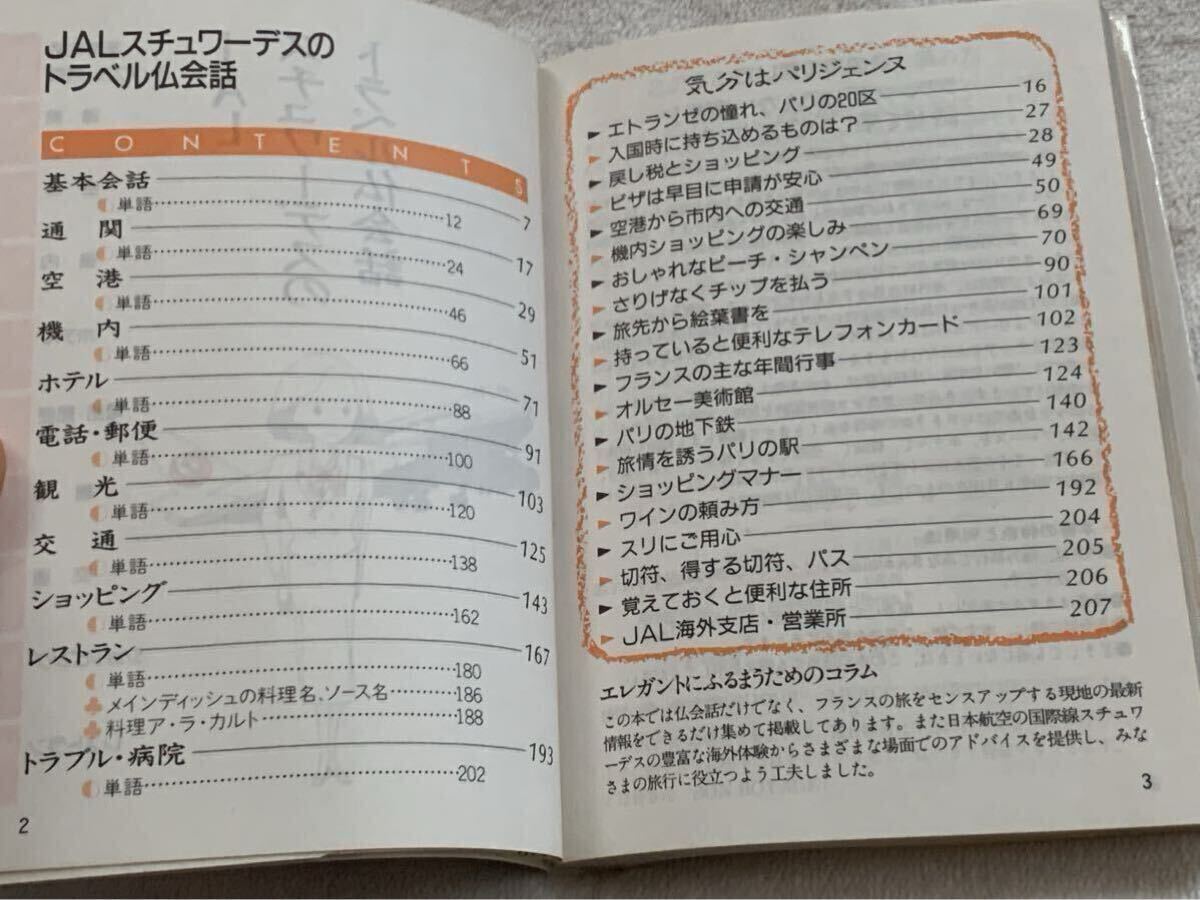 JALスチュワーデスの
トラベル仏会話
CONTENTS
基本会話 7
単語 12
通関 17
単語 24
空港 29
単語 46
機内 51
単語 66
ホテル 71
単語 88
電話・郵便 91
単語 100
観光 103
単語 120
交通 125
単語 138
ショッピング 143
単語 162
レストラン 167
単語 180
メインディッシュの料理名、ソース名 186
料理ア・ラ・カルト 188
トラブル・病院 193
単語 202
2
気分はパリジェンヌ
エトランゼの憧れ、パリの20区 16
入国時に持ち込めるものは？ 27
戻し税とショッピング 28
ビザは早目に申請が安心 49
空港から市内への交通 50
機内ショッピングの楽しみ 69
おしゃれなピーチ・シャンペン 70
さりげなくチップを払う 90
旅先から絵葉書を 101
持っていると便利なテレフォンカード 102
フランスの主な年間行事 123
オルセー美術館 124
パリの地下鉄 140
旅情を誘うパリの駅 142
ショッピングマナー 166
ワインの頼み方 192
スリにご用心 204
切符、得する切符、パス 205
覚えておくと便利な住所 206
JAL海外支店・営業所 207
エレガントにふるまうためのコラム
この本では仏会話だけでなく、フランスの旅をセンスアップする現地の最新
情報をできるだけ集めて掲載してあります。また日本航空の国際線スチュワ
ーデスの豊富な海外体験からさまざまな場面でのアドバイスを提供し、みな
さまの旅行に役立つよう工夫しました。
3